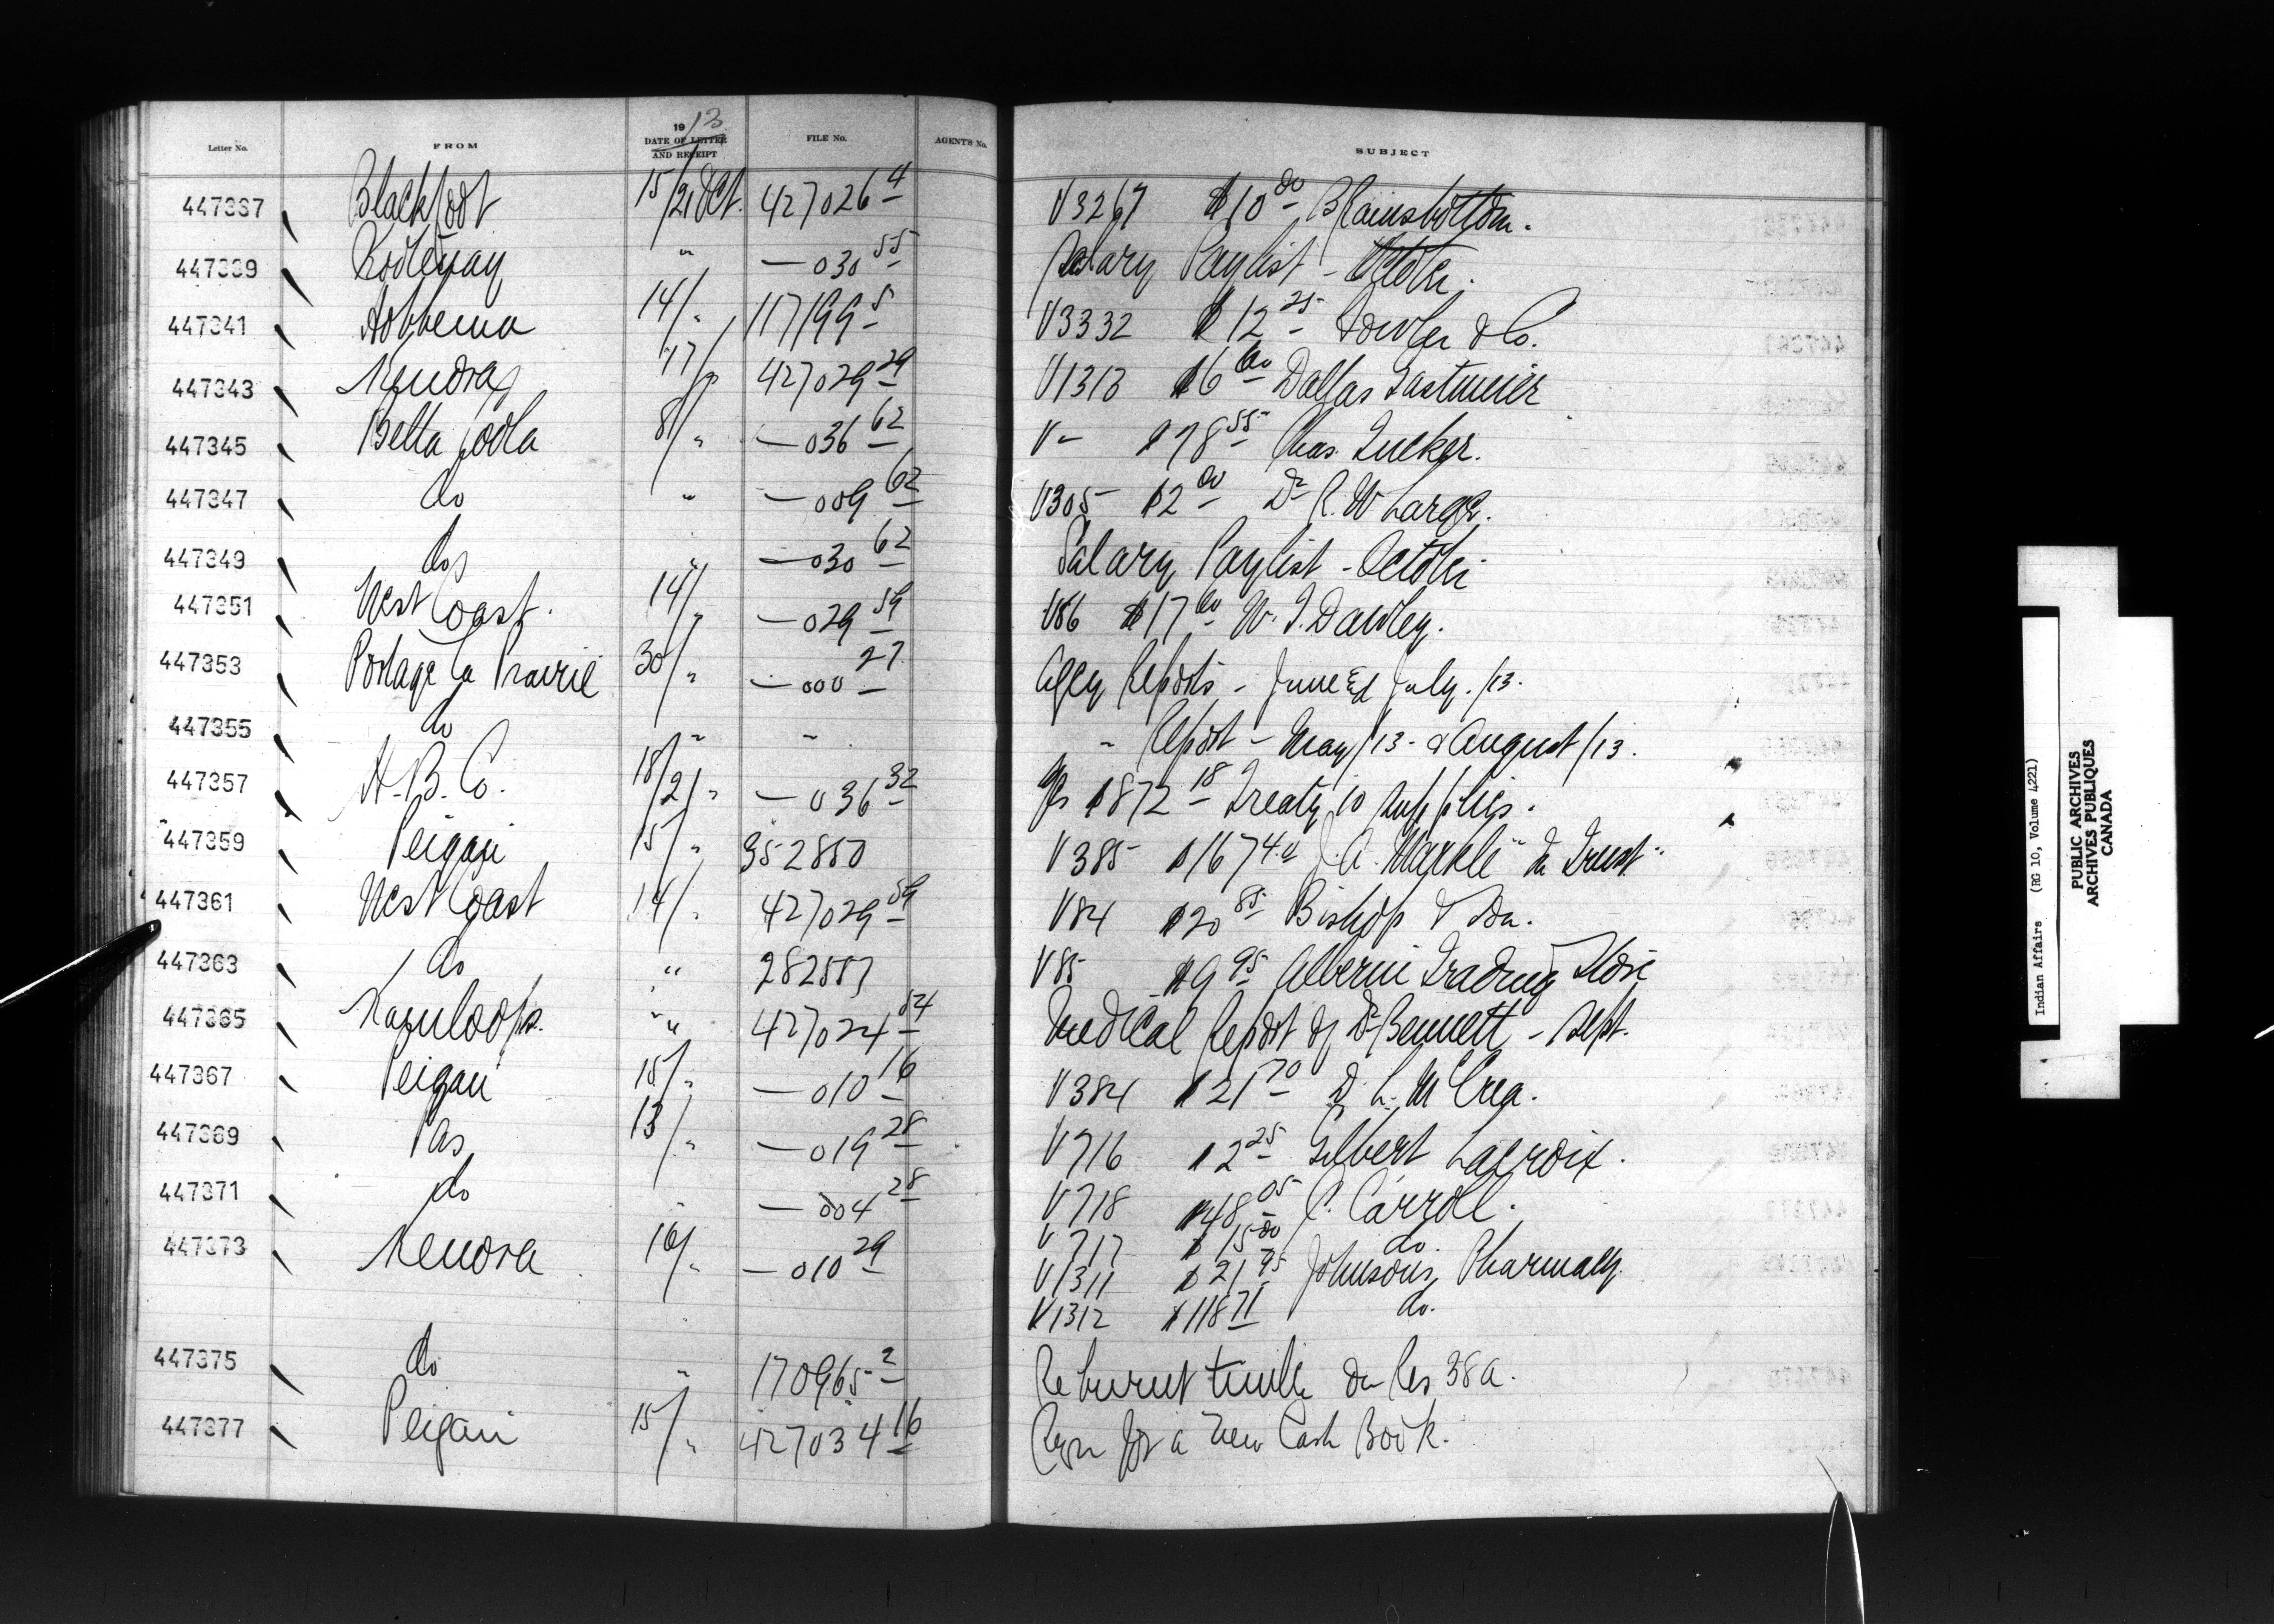 Letter No. FROM 1913 DATE OF LETTER AND RECEIPT FILE No. AGENT'S No. SUBJECT
447337 Blackfoot 15/21 Oct. 427026 4 V3267 $10 00 B Rainsbottom.
447339 Kootenay " — 030 55 Salary Paylist - October.
447341 Hobbema 14/ " 117199 5 V3332 $12 25 Fowler & Co.
447343 Kenora 17/ " 427029 29 V1313 $6 60 Dallas Eastmeier
447345 Bella Coola 8/ " — 036 62 V — $78 55 Chas. Tucker.
447347 do " — 009 62 V305 $2 00 Dr R. W Large.
447349 do " — 030 62 Salary Paylist - October
447351 West Coast. 14/ " — 029 59 V86 $17 60 W. T. Dawley.
447353 Portage la Prairie 30/ " — 000 27 Agcy Reports - June & July. /13.
447355 do " " " Report - May /13 - & August /13.
447357 H. B. Co. 18/21 " — 036 32 $872 18 Treaty 10 supplies.
447359 Peigan 15/ " 352850 V385 $1674 J. A. Markle "In Trust"
447361 West Coast 14/ " 427029 59 V84 $20 85 Bishop & Son.
447363 do " 282557 V85 $9 95 Alberni Trading Store
447365 Kamloops. " " 427024 54 Medical Report of Dr Bennett - Sept.
447367 Peigan 15/ " — 010 16 V384 $21 70 D. L. McCrea.
447369 Pas 13/ " — 019 28 V716 $2 25 Gilbert Lacroix.
447371 do " — 004 28 V718 $48 05 P. Carroll.
V717 $15 00 do.
447373 Kenora 16/ " — 010 29 V1311 $21 95 Johnsons Pharmacy
V1312 $118 71 do.
447375 do " 170965 2 Re burnt timber on Res 38a.
447377 Peigan 15/ " 427034 16 Reqn for a new Cash Book.
Indian Affairs (RG 10, Volume 4221)
PUBLIC ARCHIVES
ARCHIVES PUBLIQUES
CANADA